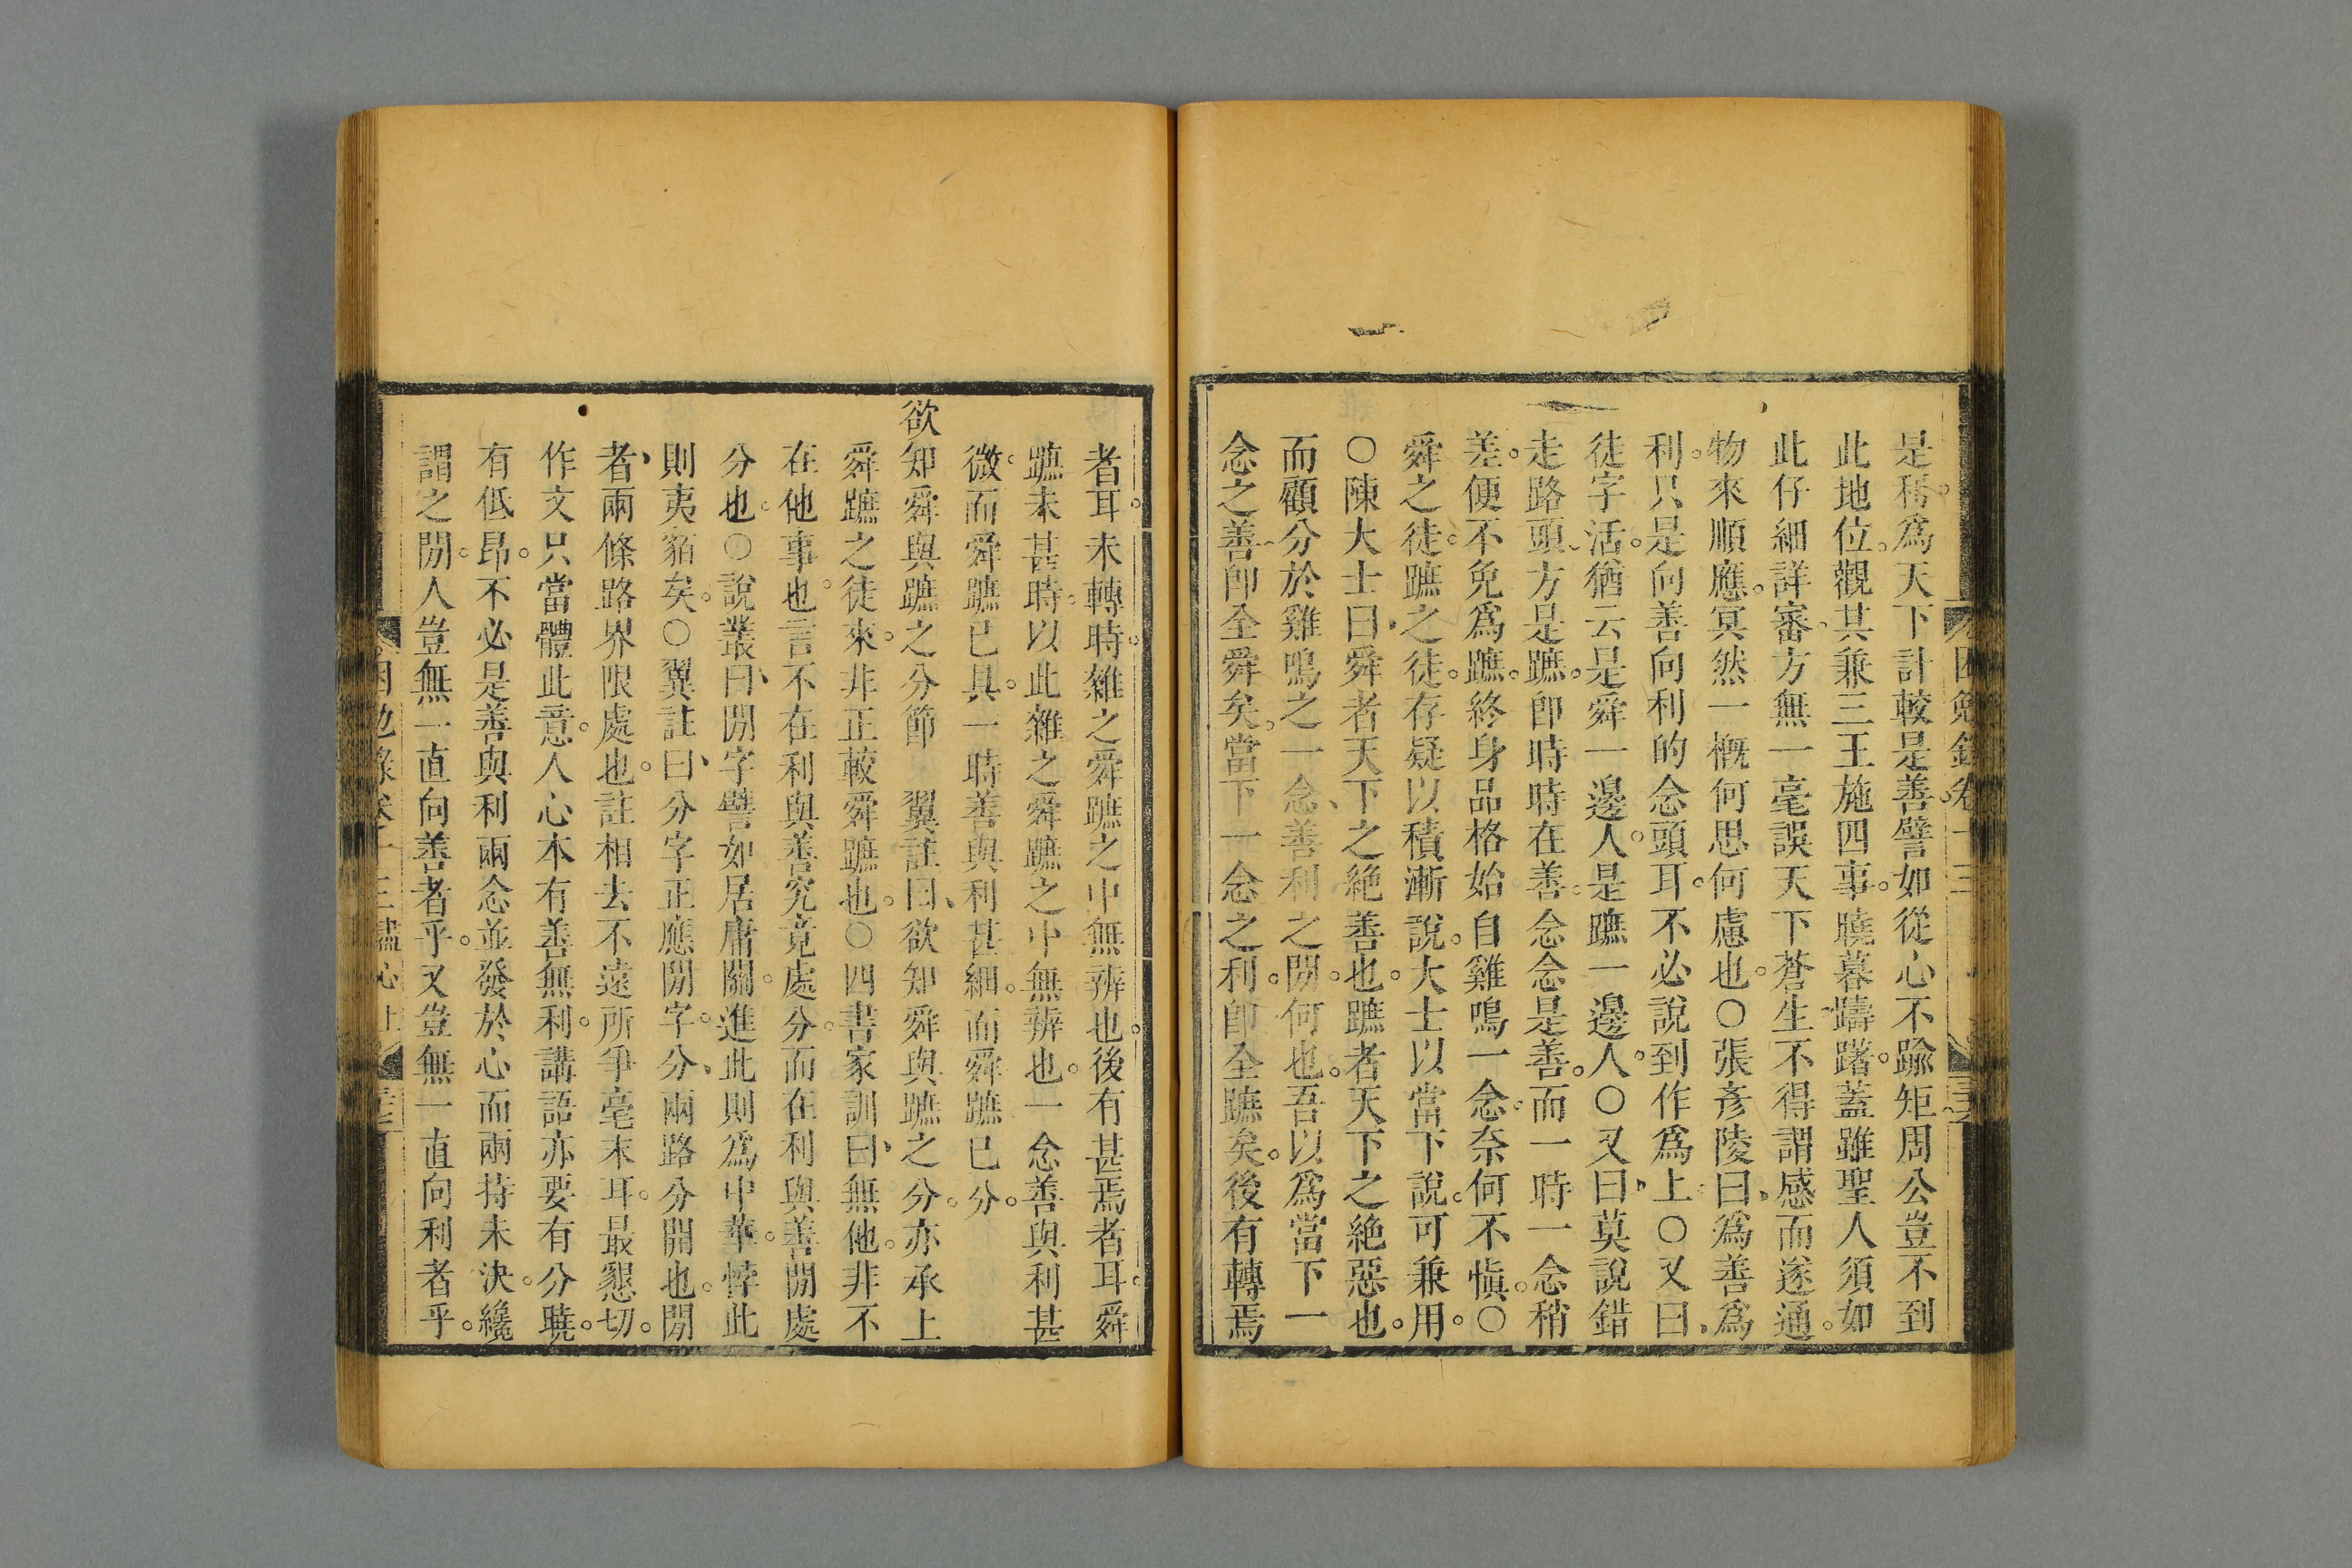 是穪爲天下計較是善譬如從心不踰矩周公豈不到
此地位觀其兼三王施四事曉暮躊躇蓋雖聖人須如
此仔細詳審方無一毫誤天下蒼生不得謂感而遂通
物來順應冥然一槪何思何慮也○張彥陵曰爲善爲
利只是向善向利的念頭耳不必說到作爲上○又曰
徒字活猶云是舜一邊人是蹠一邊人○又曰莫說錯
走路頭方是蹠卽時時在善念念是善而一時一念稍
差便不免爲蹠終身品格始自雞鳴一念奈何不愼○
舜之徒蹠之徒存疑以積漸說大士以當下說可兼用
○陳大士曰舜者天下之絶善也蹠者天下之絶惡也
而顧分於雞鳴之一念善利之閒何也吾以爲當下一
念之善卽全舜矣當下一念之利卽全蹠矣後有轉焉
者耳未轉時雜之舜蹠之中無辨也後有甚焉者耳舜
蹠未甚時以此雜之舜蹠之中無辨也一念善與利甚
微而舜蹠已具一時善與利甚細而舜蹠已分
欲知舜與蹠之分節 翼註曰欲知舜與蹠之分亦承上
舜蹠之徒來非正較舜蹠也○四書家訓曰無他非不
在他事也言不在利與善究竟處分而在利與善閒處
分也○說叢曰閒字譬如居庸關進此則爲中華悖此
則夷貊矣○翼註曰分字正應閒字分兩路分開也閒
者兩條路界限處也註相去不遠所爭毫末耳最懇切
作文只當體此意人心本有善無利講語亦要有分曉
有低昂不必是善與利兩念並發於心而兩持未決纔
謂之閒人豈無一直向善者乎又豈無一直向利者乎
困勉錄卷十三 盡心上